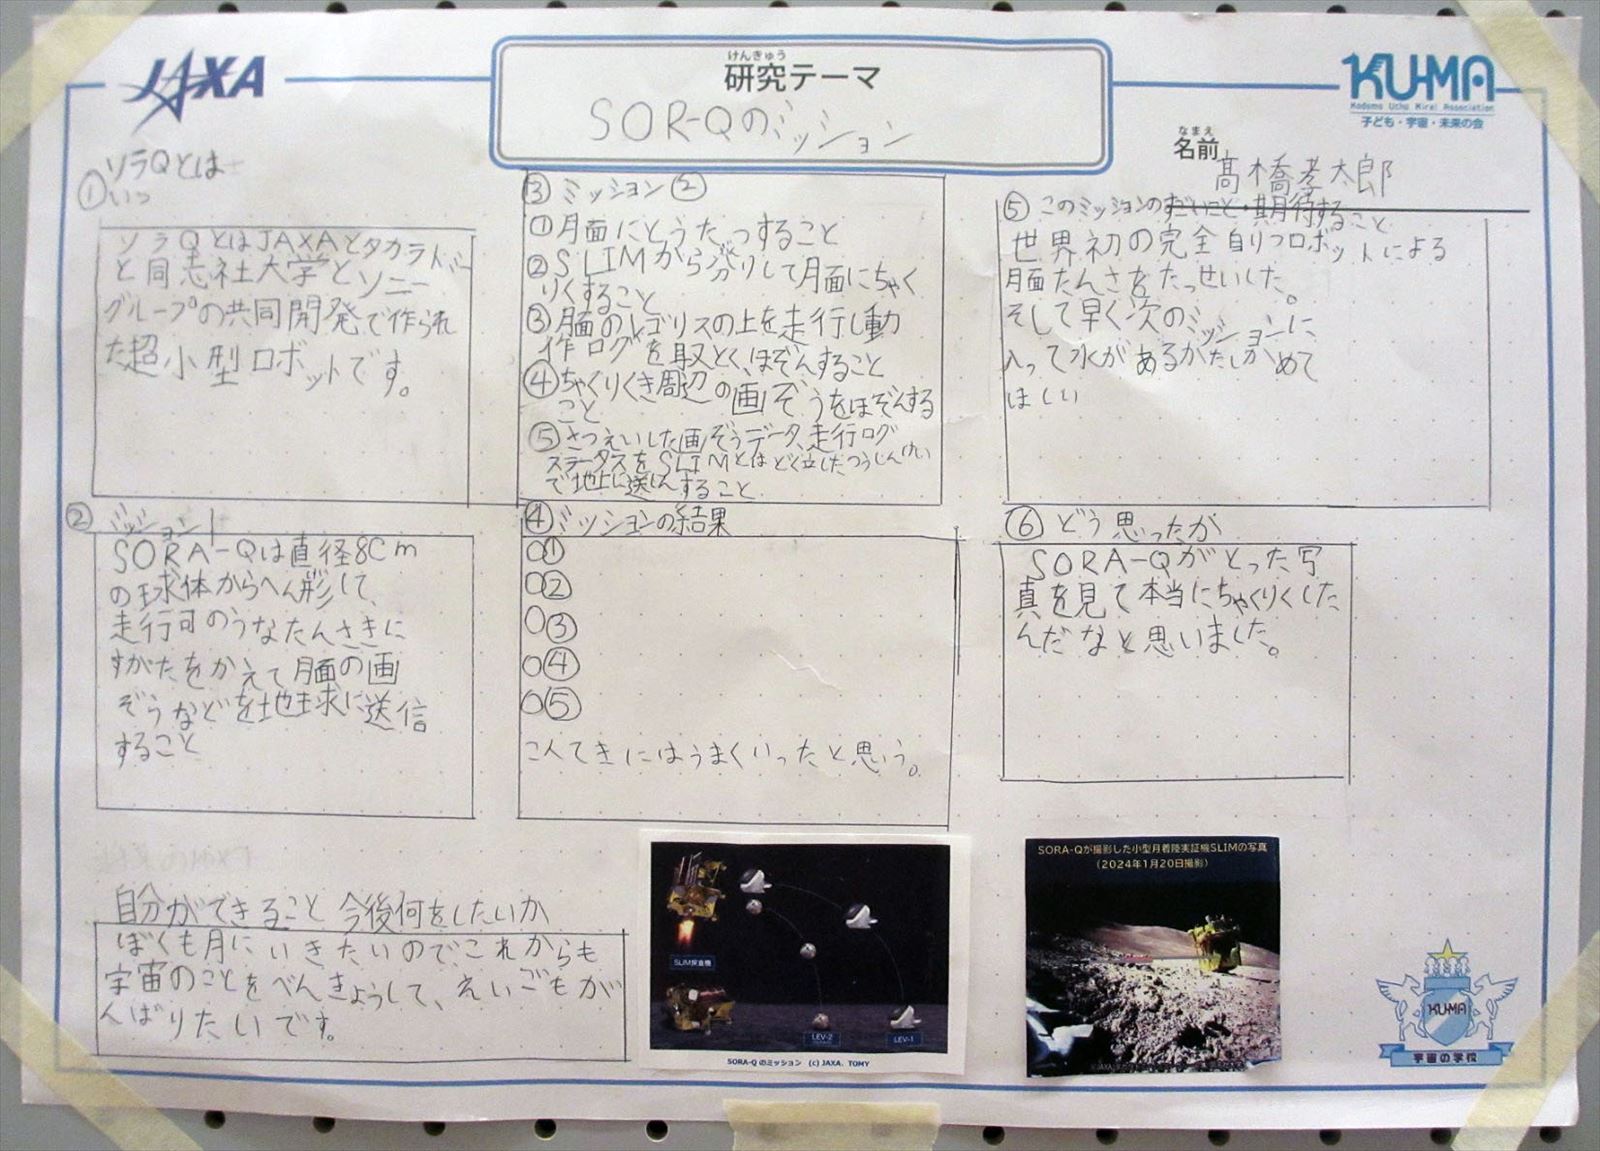 JAXA
けんきゅう
研究テーマ
SOR-Qのミッション
KU-MA
Kodomo Uchu Mirai Association
子ども・宇宙・未来の会
なまえ
名前
髙橋孝太郎
① ソラQとは
ソラQとはJAXAとタカラトミー
と同志社大学とソニー
グループの共同開発で作られ
た超小型ロボットです。
② ミッション1
SORA-Qは直径8Cm
の球体からへん形して、
走行可のうなたんさきに
すがたをかえて月面の画
ぞうなどを地球に送信
すること
③ ミッション②
①月面にとうたつすること
②SLIMから分りして月面にちゃく
りくすること
③月面のレゴリスの上を走行し動
作ログを取とく、ほぞんすること
④ちゃくりくき周辺の画ぞうをほぞんする
こと
⑤さつえいした画ぞうデータ、走行ログ
ステータスをSLIMとはどく立したつうしんけい
で地上に送しんすること
④ミッションの結果
○①
○②
○③
○④
○⑤
こ人てきにはうまくいったと思う。
⑤ このミッションのすごいこと・期待すること
世界初の完全自りつロボットによる
月面たんさをたっせいした。
そして早く次のミッションに
入って水があるかたしかめて
ほしい
⑥ どう思ったか
SORA-Qがとった写
真を見て本当にちゃくりくした
んだなと思いました。
自分ができること 今後何をしたいか
ぼくも月にいきたいのでこれからも
宇宙のことをべんきょうして、えいごもが
んばりたいです。
SLIM探査機
LEV-2
LEV-1
SORA-Qのミッション (c) JAXA、TOMY
SORA-Qが撮影した小型月着陸実証機SLIMの写真
(2024年1月20日撮影)
KU-MA
宇宙の学校